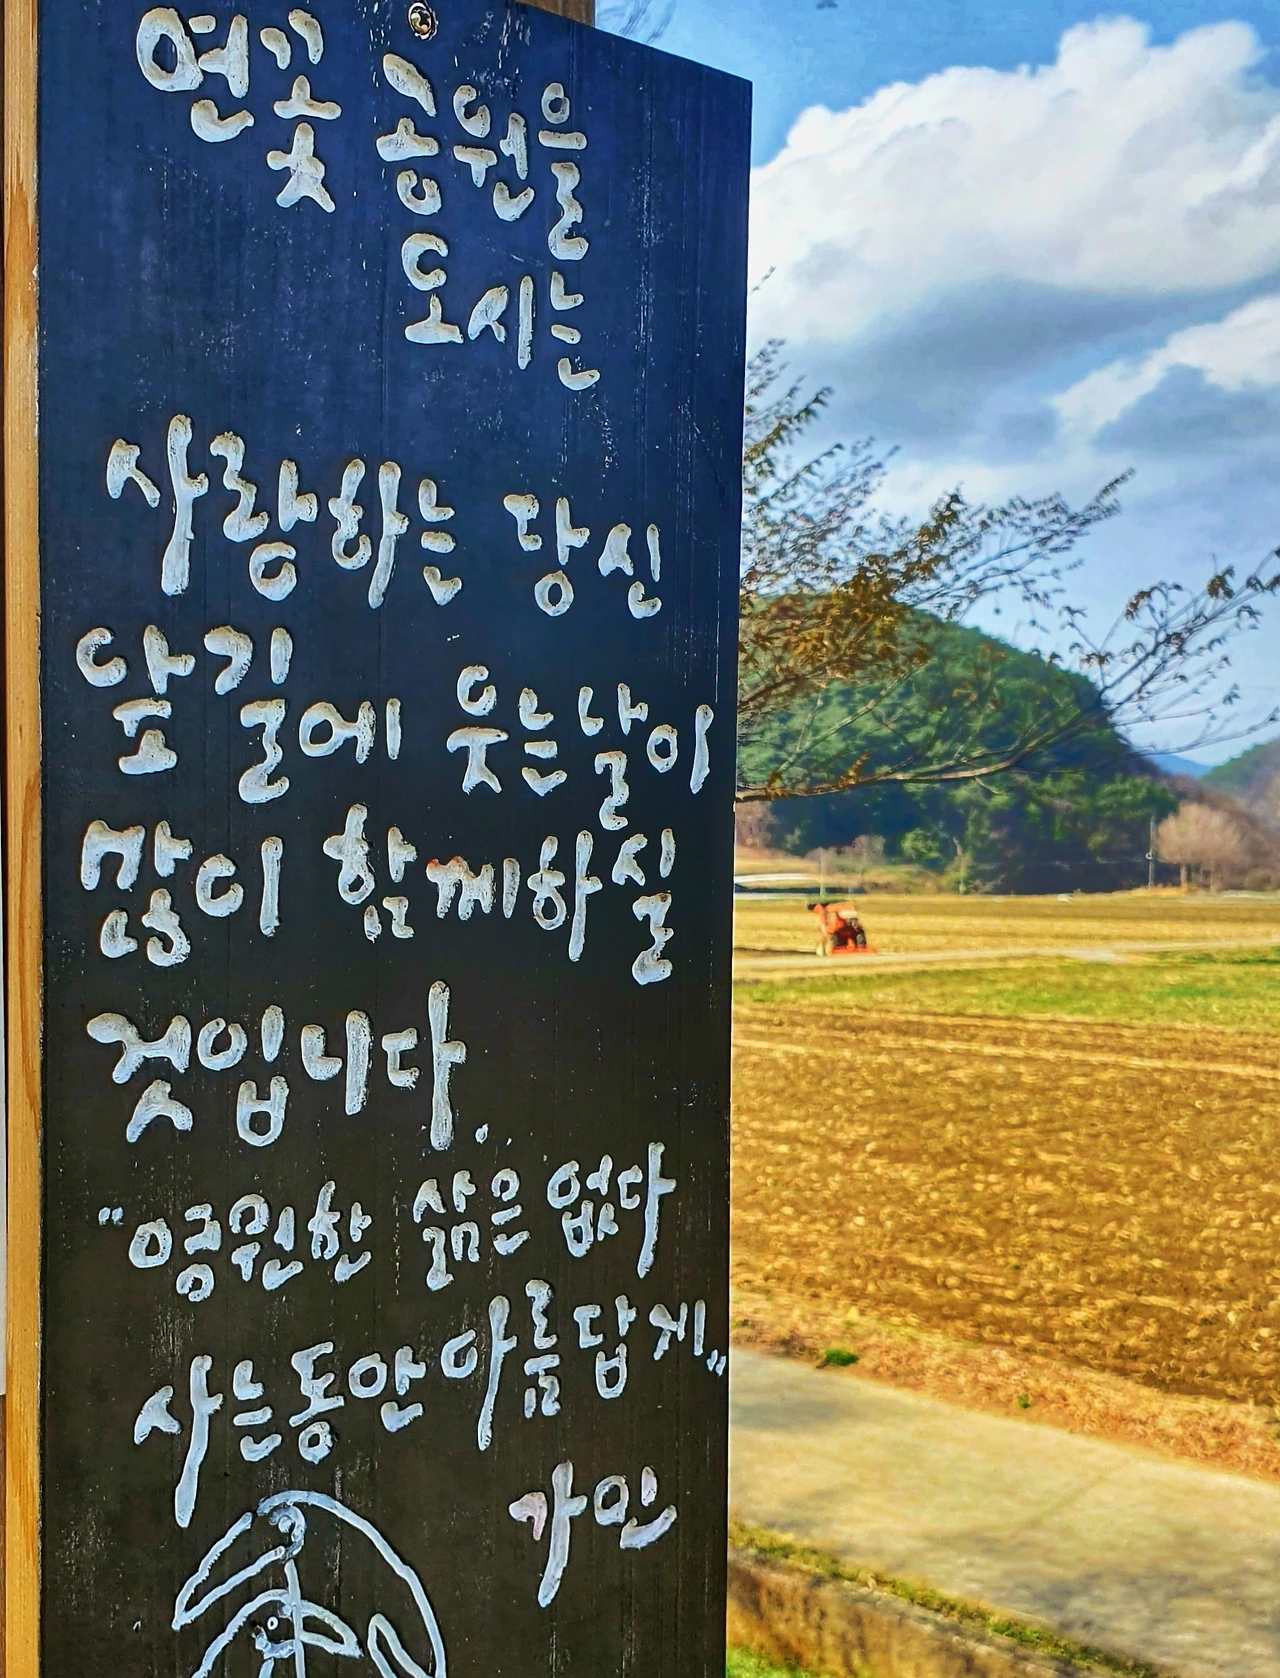 연꽃 공원을
오시는
사랑하는 당신
앞길에 웃는날이
많이 함께하실
것입니다.
"영원한 삶은 없다
사는동안 아름답게"
가인